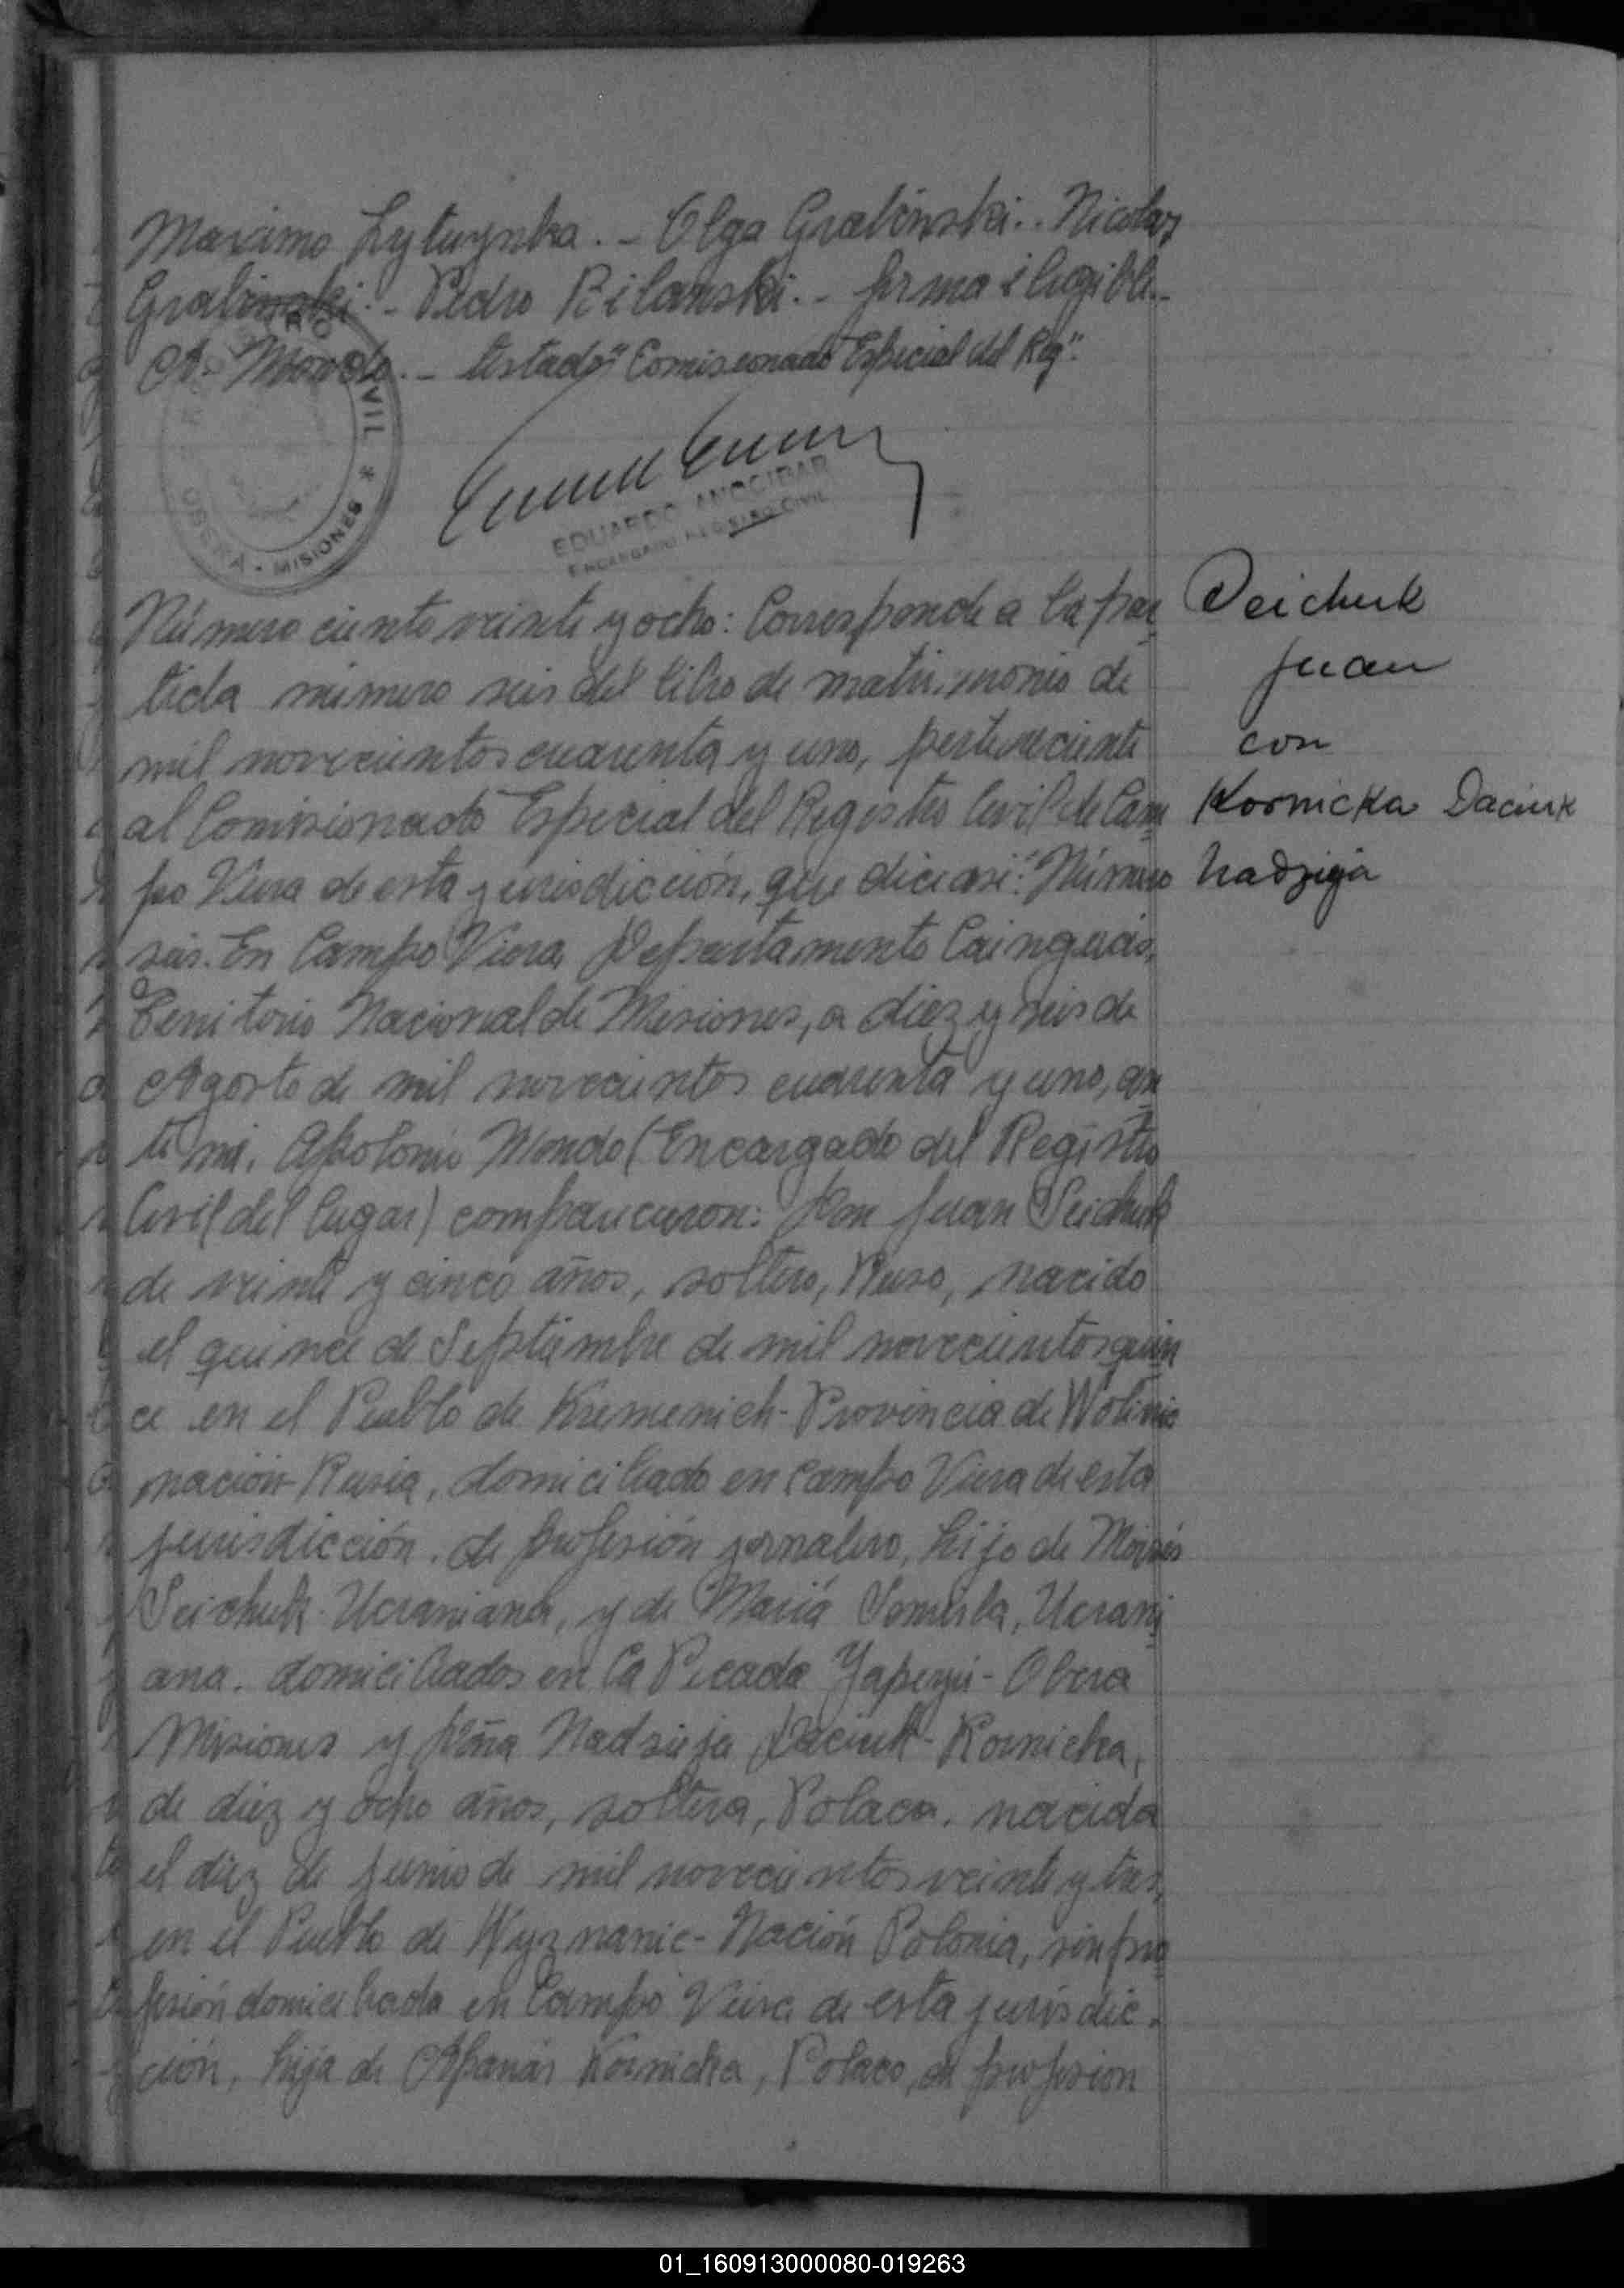 Maximo Lytwynka. - Olga Grabinski.. Nicolas
Grabinski. - Pedro Bilanski. - firma ilegible. -
A. Mondo. - Testado "Comisionado Especial del Reg".
CIVIL * OBERA - MISIONES
EDUARDO ANOCIBAR
ENCARGADO REGISTRO CIVIL
Número ciento veinte y ocho: Corresponde a la par
Deichuk
tida número seis del libro de matrimonio de
Juan
mil novecientos cuarenta y uno, perteneciente
con
al Comisionado Especial del Registro Civil de Cam
Kornicka Daciuk
po Viera de esta jurisdicción, que dice asi: "Número
Nadzieja
seis. En Campo Viera, Departamento Cainguás,
Territorio Nacional de Misiones, a diez y seis de
Agosto de mil novecientos cuarenta y uno, an
te mi, Apolonio Mondo (Encargado del Registro
Civil del lugar) comparecieron: Don Juan Seichuk
de veinte y cinco años, soltero, Ruso, nacido
el quince de Septiembre de mil novecientos quin
ce en el Pueblo de Kremenich - Provincia de Wolinia
nación Rusia, domiciliado en Campo Viera de esta
jurisdicción, de profesión jornalero, hijo de Moisés
Seichuk Ucraniana, y de María, Ucrani
ana, domiciliados en la Picada Yapeyú - Obera
Misiones y Doña Nadsieja Daciuk - Kornicka,
de diez y ocho años, soltera, Polaca, nacida
el diez de junio de mil novecientos veinte y tres,
en el Pueblo de Wyznanic - Nación Polonia, sin pro
fesión domiciliada en Campo Viera de esta jurisdic.
ción, hija de Apanás Kornicka, Polaco, de profesion
01_160913000080-019263